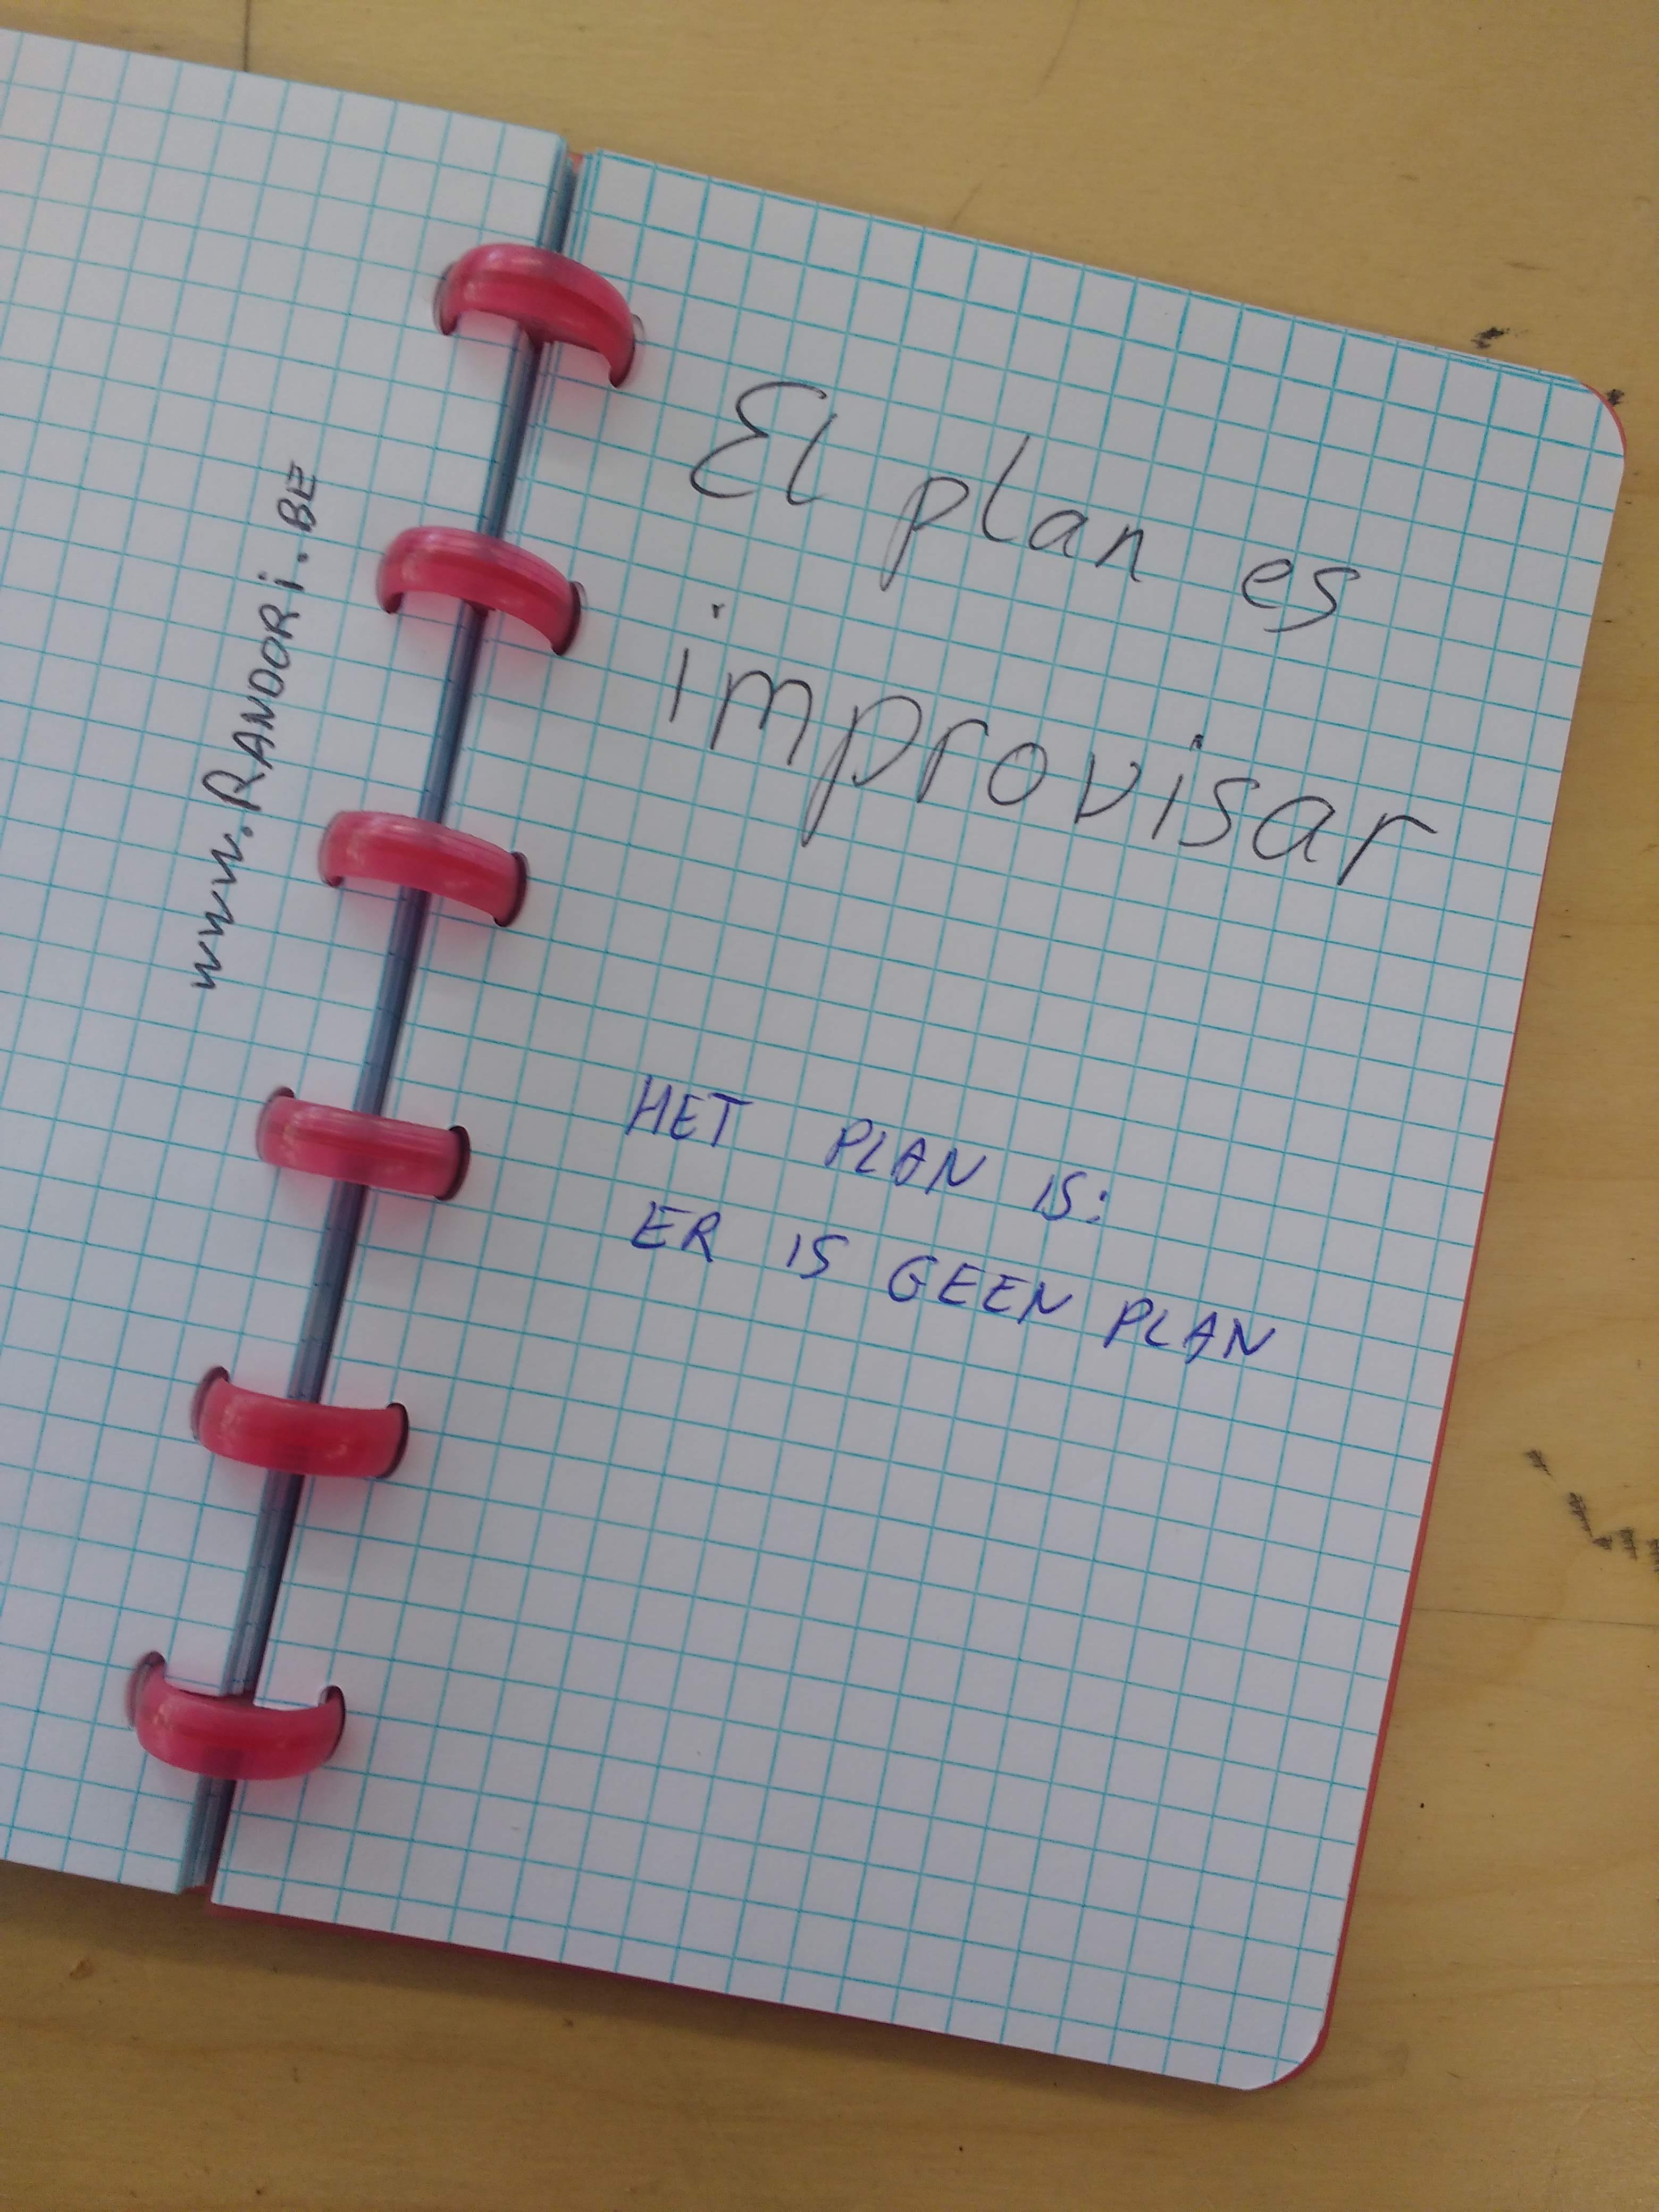 www.RANDORi.BE
El plan es
improvisar
HET PLAN IS:
ER IS GEEN PLAN